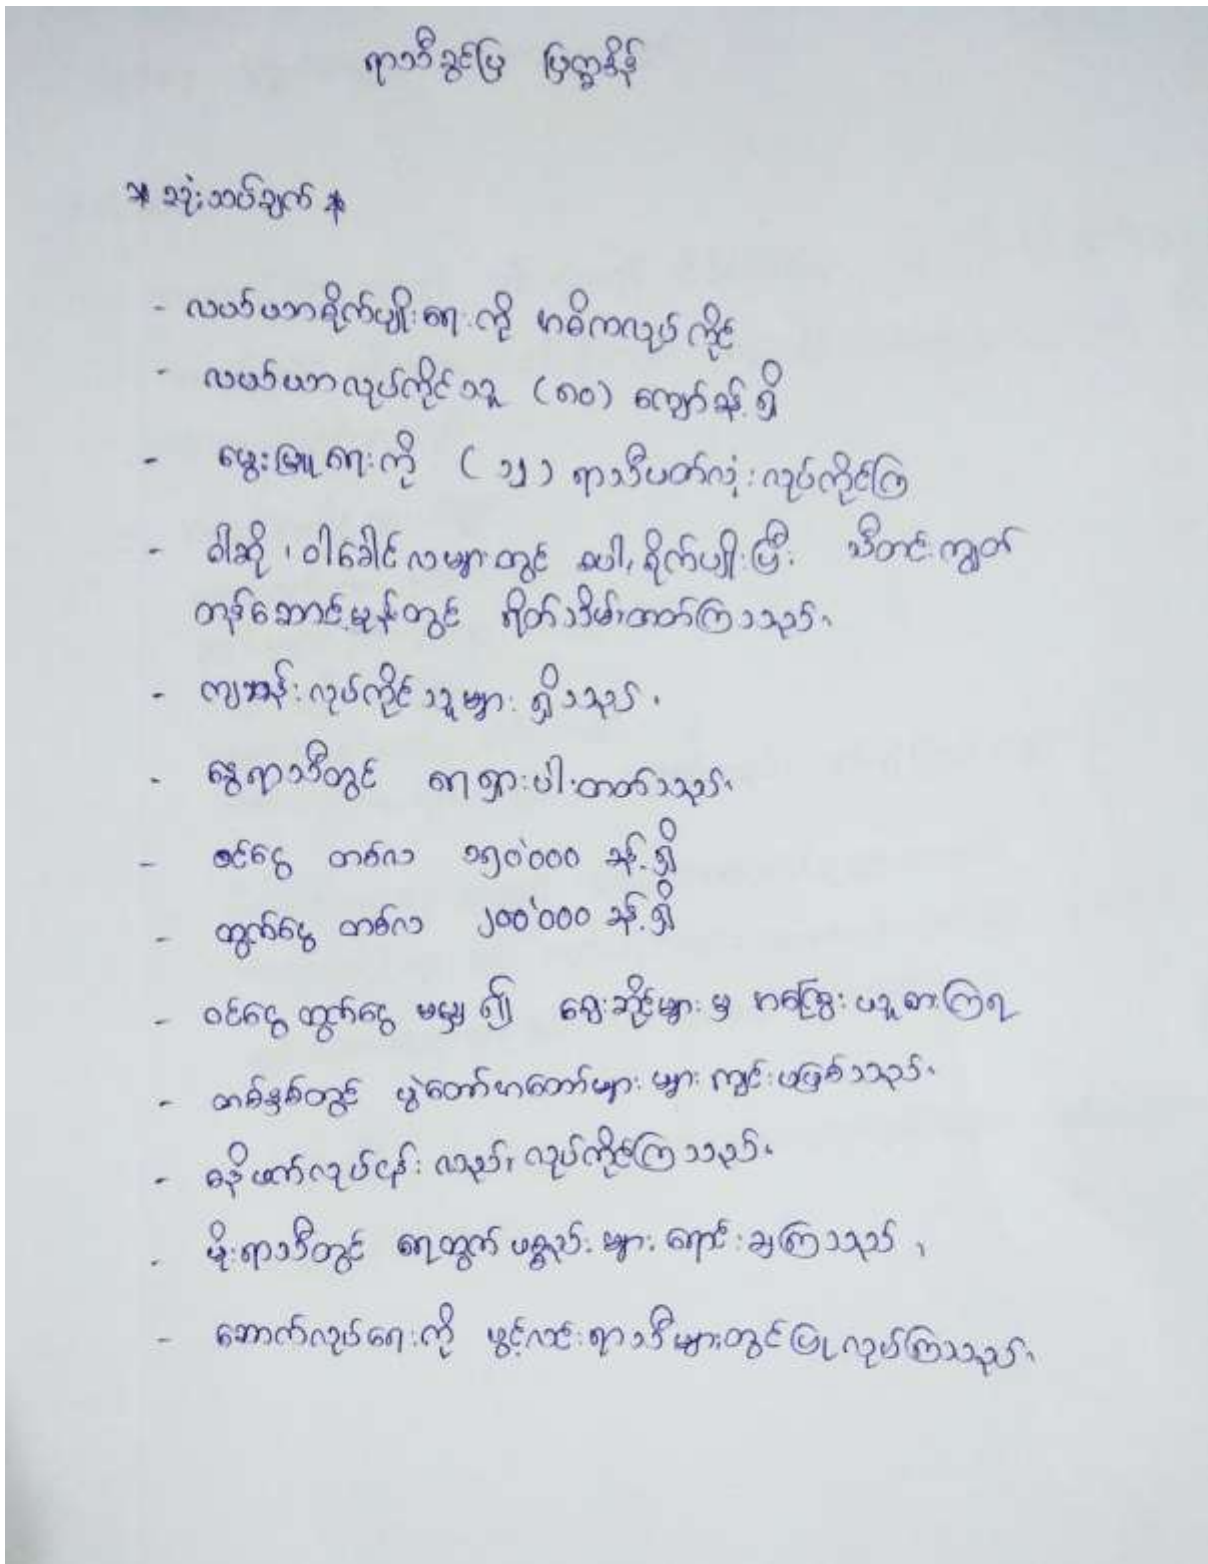 ရာသီခွင်ပြ ပြက္ခဒိန်
* သုံးသပ်ချက် *
- လယ်ယာစိုက်ပျိုးရေးကို အဓိကလုပ်ကိုင်
- လယ်ယာလုပ်ကိုင်သူ (၈၀) ကျော်ခန့်ရှိ
- မွေးမြူရေးကို (၁၂) ရာသီပတ်လုံးလုပ်ကိုင်ကြ
- ဝါဆို၊ ဝါခေါင်လများတွင် စပါးစိုက်ပျိုးပြီး သီတင်းကျွတ်
တန်ဆောင်မုန်းတွင် ရိတ်သိမ်းတတ်ကြသည်။
- ကျပန်းလုပ်ကိုင်သူများ ရှိသည်။
- နွေရာသီတွင် ရေရှားပါးတတ်သည်။
- ဝင်ငွေ တစ်လ ၁၅၀'၀၀၀ ခန့်ရှိ
- ထွက်ငွေ တစ်လ ၂၀၀'၀၀၀ ခန့်ရှိ
- ဝင်ငွေထွက်ငွေ မမျှ၍ ဈေးဆိုင်များမှ အကြွေးယူစားကြရ
- တစ်နှစ်တွင် ပွဲတော်အတော်များများ ကျင်းပဖြစ်သည်။
- ဓနိဖက်လုပ်ငန်း လည်း လုပ်ကိုင်ကြသည်။
- မိုးရာသီတွင် ရေထွက်ပစ္စည်းများ ရောင်းချကြသည်။
- ဆောက်လုပ်ရေးကို ပွင့်လင်းရာသီများတွင် ပြုလုပ်ကြသည်။